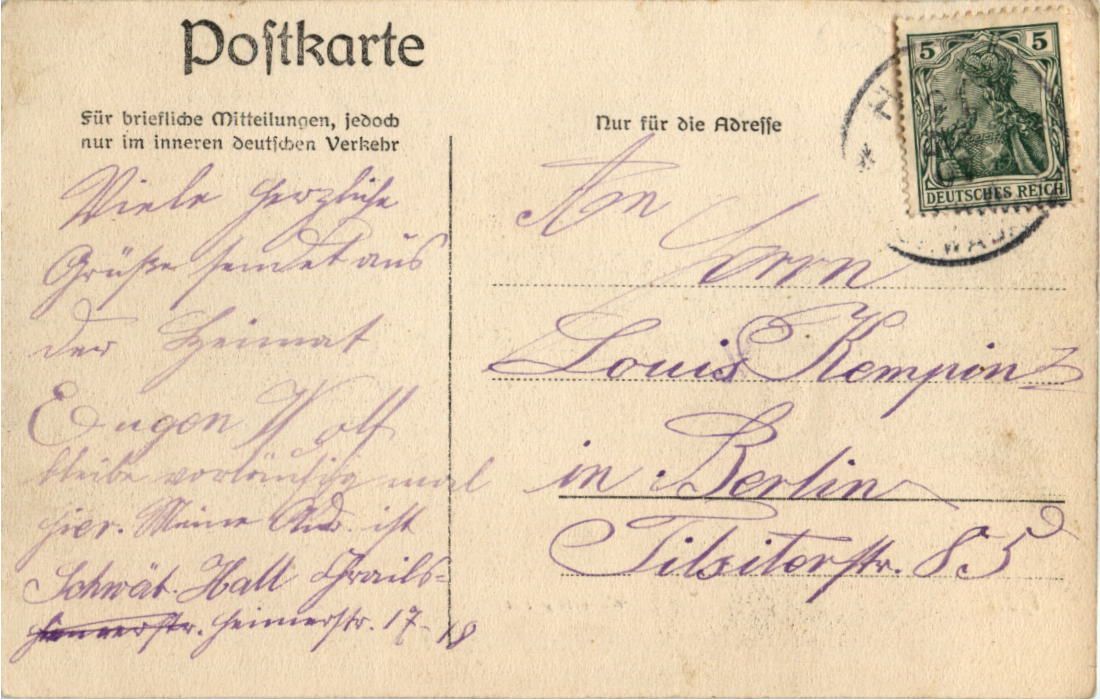 Postkarte
Für briefliche Mitteilungen, jedoch
nur im inneren deutschen Verkehr
Nur für die Adresse
5 5
DEUTSCHES REICH
Viele herzliche
Grüße sendet aus
der Heimat
Eugen Wolf
bleibe vorläufig mal
hier. Meine Adr. ist
Schwät. Hall Crails-
heimerstr. 17-18
An
Herrn
Louis Kempin
in Berlin
Tilsiterstr. 85